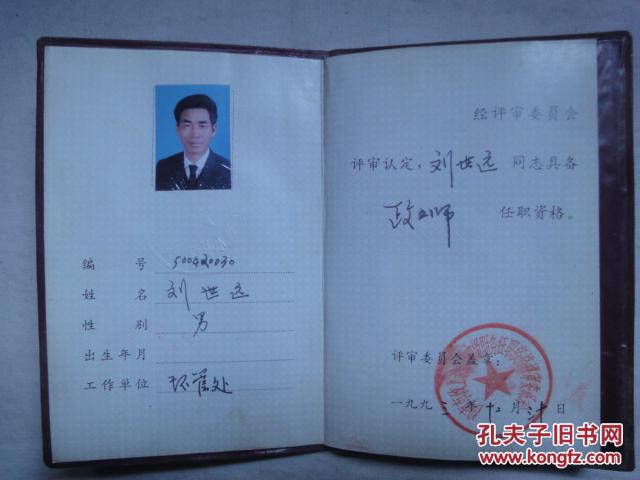 编 号 500420030
姓 名 刘世远
性 别 男
出生年月
工作单位 环管处
经评审委员会
评审认定,刘世远 同志具备
政工师 任职资格。
评审委员会盖章:
一九九三年十二月三十日
孔夫子旧书网
www.kongfz.com